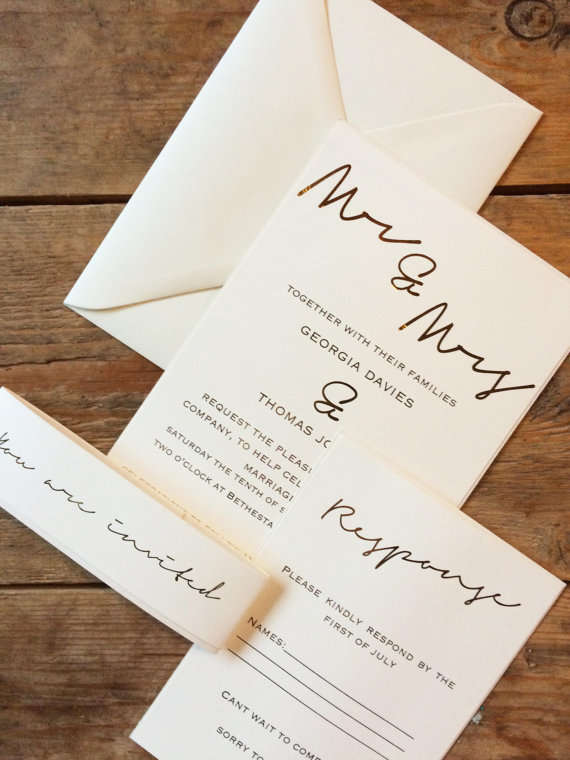 Mr
&
Mrs
TOGETHER WITH THEIR FAMILIES
GEORGIA DAVIES
&
THOMAS
REQUEST THE
COMPANY, TO HELP
MARRIAGE
SATURDAY THE TENTH OF
TWO O'CLOCK AT
You are invited
Response
PLEASE KINDLY RESPOND BY THE
FIRST OF JULY
NAMES:
CANT WAIT TO COME
SORRY TO